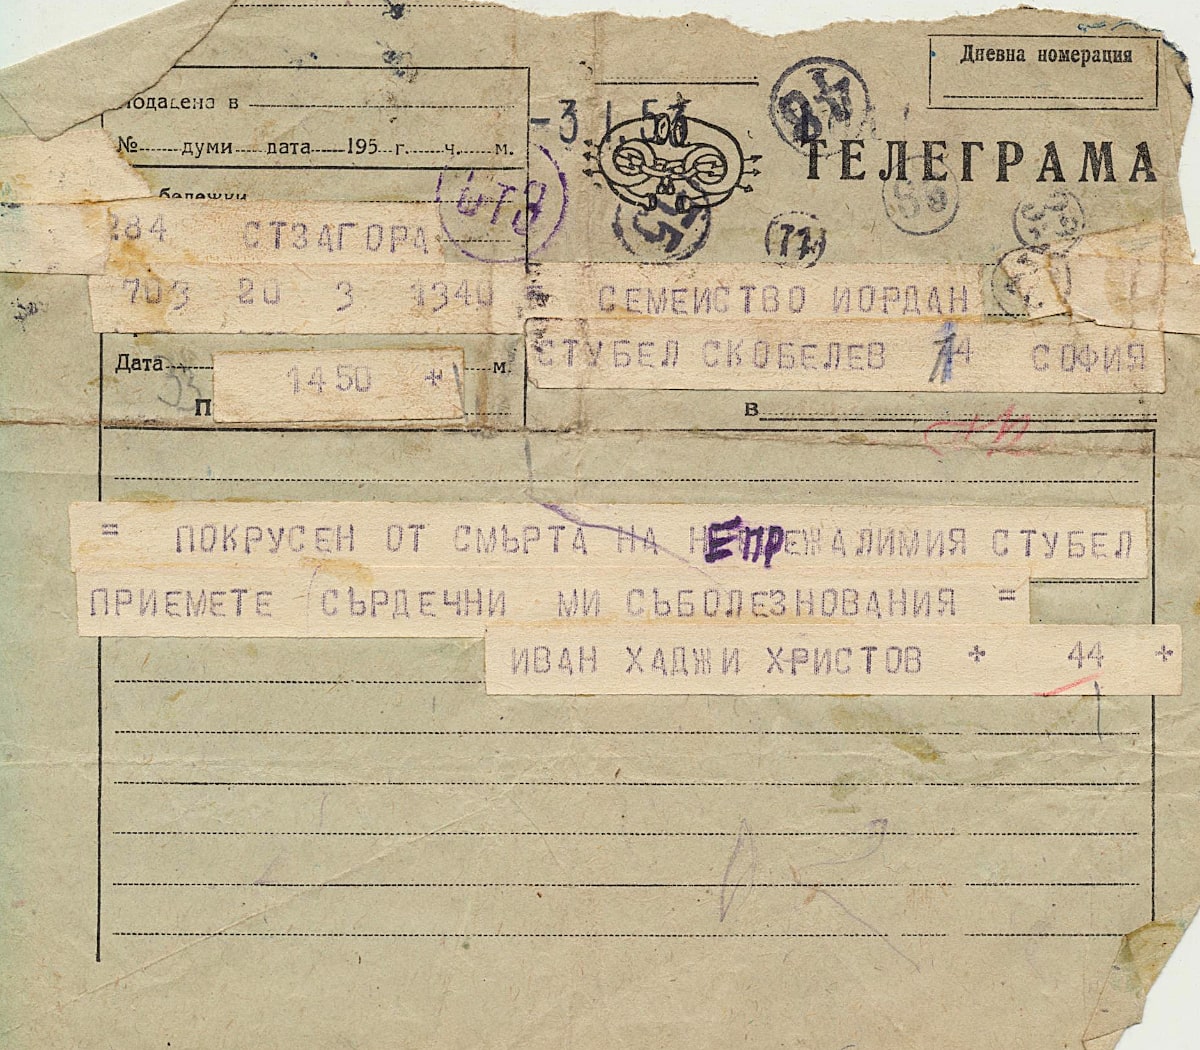 Дневна номерация
Подадено в
-3.I.53
ТЕЛЕГРАМА
№ думи дата 195 г. ч. м.
бележки
284 СТЗАГОРА
703 20 3 1340 = СЕМЕИСТВО ИОРДАН
СТУБЕЛ СКОБЕЛЕВ 44 СОФИЯ
Дата 1450 + м.
П В
= ПОКРУСЕН ОТ СМЪРТА НА НЕПРЕЖАЛИМИЯ СТУБЕЛ
ПРИЕМЕТЕ СЪРДЕЧНИ МИ СЪБОЛЕЗНОВАНИЯ =
ИВАН ХАДЖИ ХРИСТОВ + 44 +